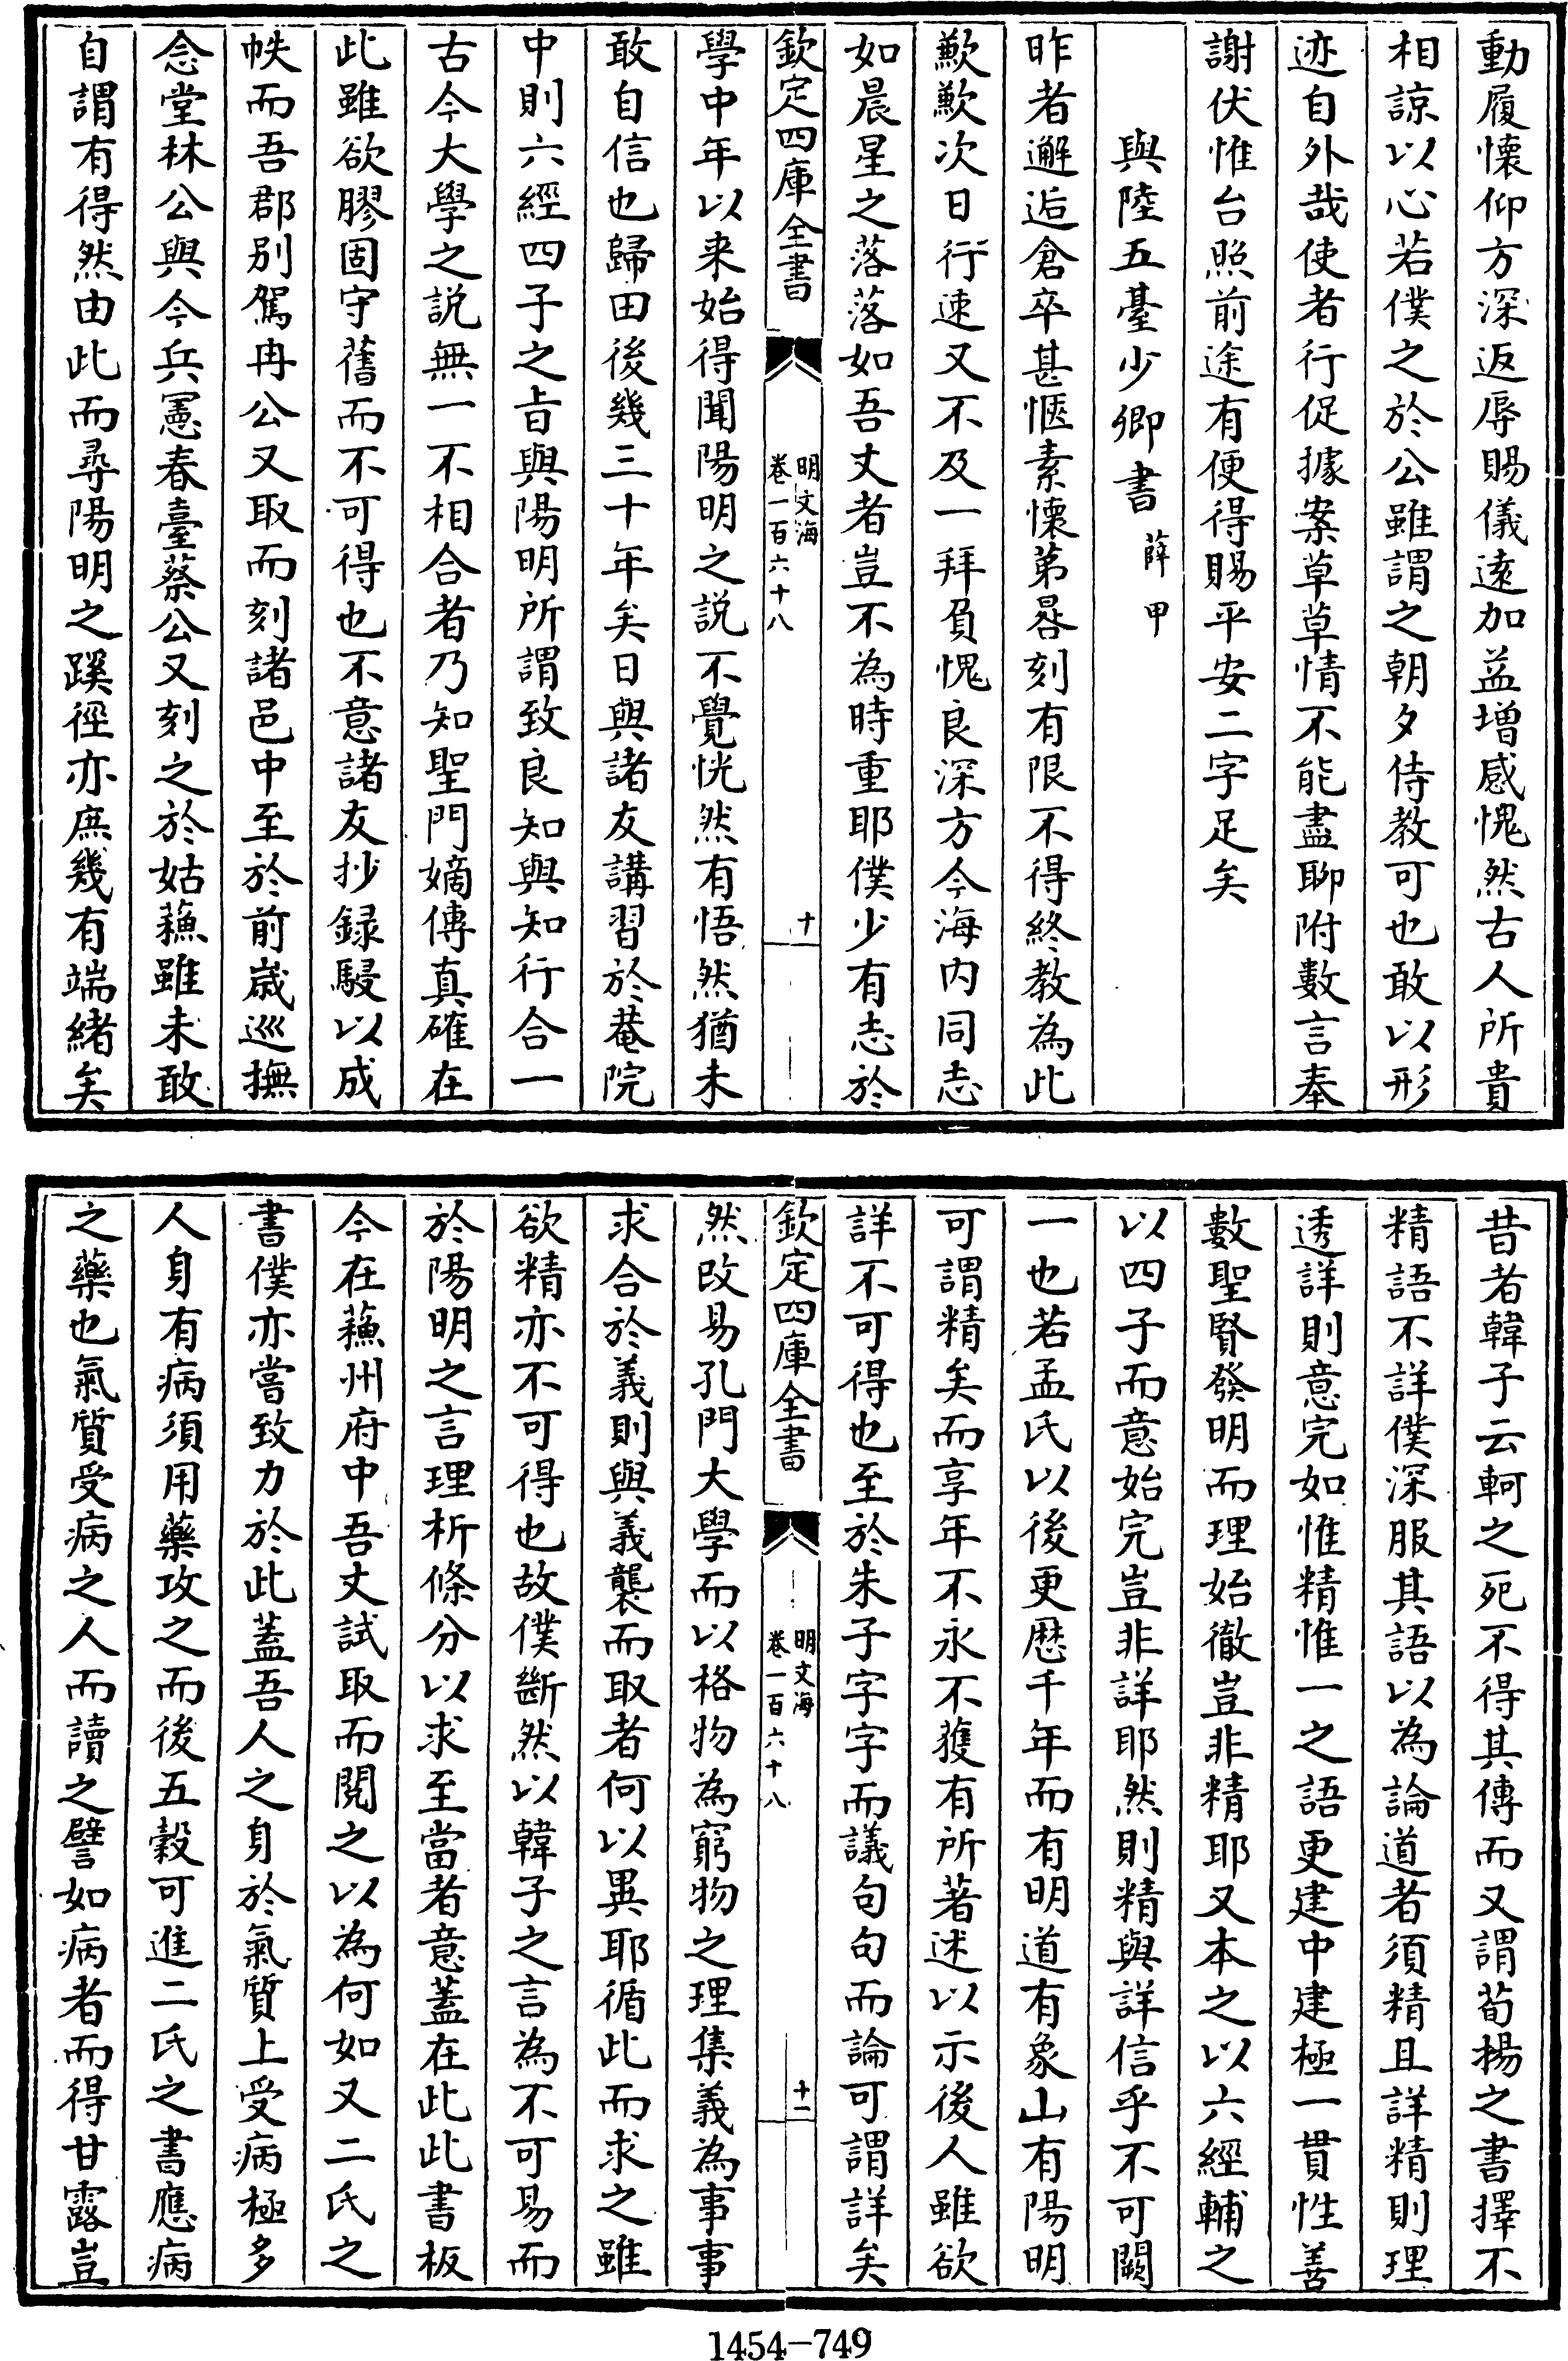 動履懐仰方深返辱賜儀逺加益増感愧然古人所貴
相諒以心若僕之於公雖謂之朝夕侍教可也敢以形
迹自外哉使者行促據案草草情不能盡聊附數言奉
謝伏惟台照前途有便得賜平安二字足矣
與陸五臺少卿書 薛甲
昨者邂逅倉卒甚愜素懐第晷刻有限不得終教為此
歉歉次日行速又不及一拜負愧良深方今海内同志
如晨星之落落如吾丈者豈不為時重耶僕少有志於
欽定四庫全書 明文海 卷一百六十八 十
學中年以来始得聞陽明之説不覺恍然有悟然猶未
敢自信也歸田後幾三十年矣日與諸友講習於菴院
中則六經四子之㫖與陽明所謂致良知與知行合一
古今大學之説無一不相合者乃知聖門嫡傳真確在
此雖欲膠固守舊而不可得也不意諸友抄録駸以成
帙而吾郡别駕冉公又取而刻諸邑中至於前嵗巡撫
念堂林公與今兵憲春臺蔡公又刻之於姑蘓雖未敢
自謂有得然由此而尋陽明之蹊徑亦庶幾有端緒矣
昔者韓子云軻之死不得其傳而又謂荀揚之書擇不
精語不詳僕深服其語以為論道者須精且詳精則理
透詳則意完如惟精惟一之語更建中建極一貫性善
數聖賢發明而理始徹豈非精耶又本之以六經輔之
以四子而意始完豈非詳耶然則精與詳信乎不可闕
一也若孟氏以後更歴千年而有明道有象山有陽明
可謂精矣而享年不永不獲有所著述以示後人雖欲
詳不可得也至於朱子字字而議句句而論可謂詳矣
欽定四庫全書 明文海 卷一百六十八 十一
然改易孔門大學而以格物為窮物之理集義為事事
求合於義則與義襲而取者何以異耶循此而求之雖
欲精亦不可得也故僕斷然以韓子之言為不可易而
於陽明之言理析條分以求至當者意蓋在此此書板
今在蘓州府中吾丈試取而閲之以為何如又二氏之
書僕亦嘗致力於此蓋吾人之身於氣質上受病極多
人身有病須用藥攻之而後五穀可進二氏之書應病
之藥也氣質受病之人而讀之譬如病者而得甘露豈
1454-749